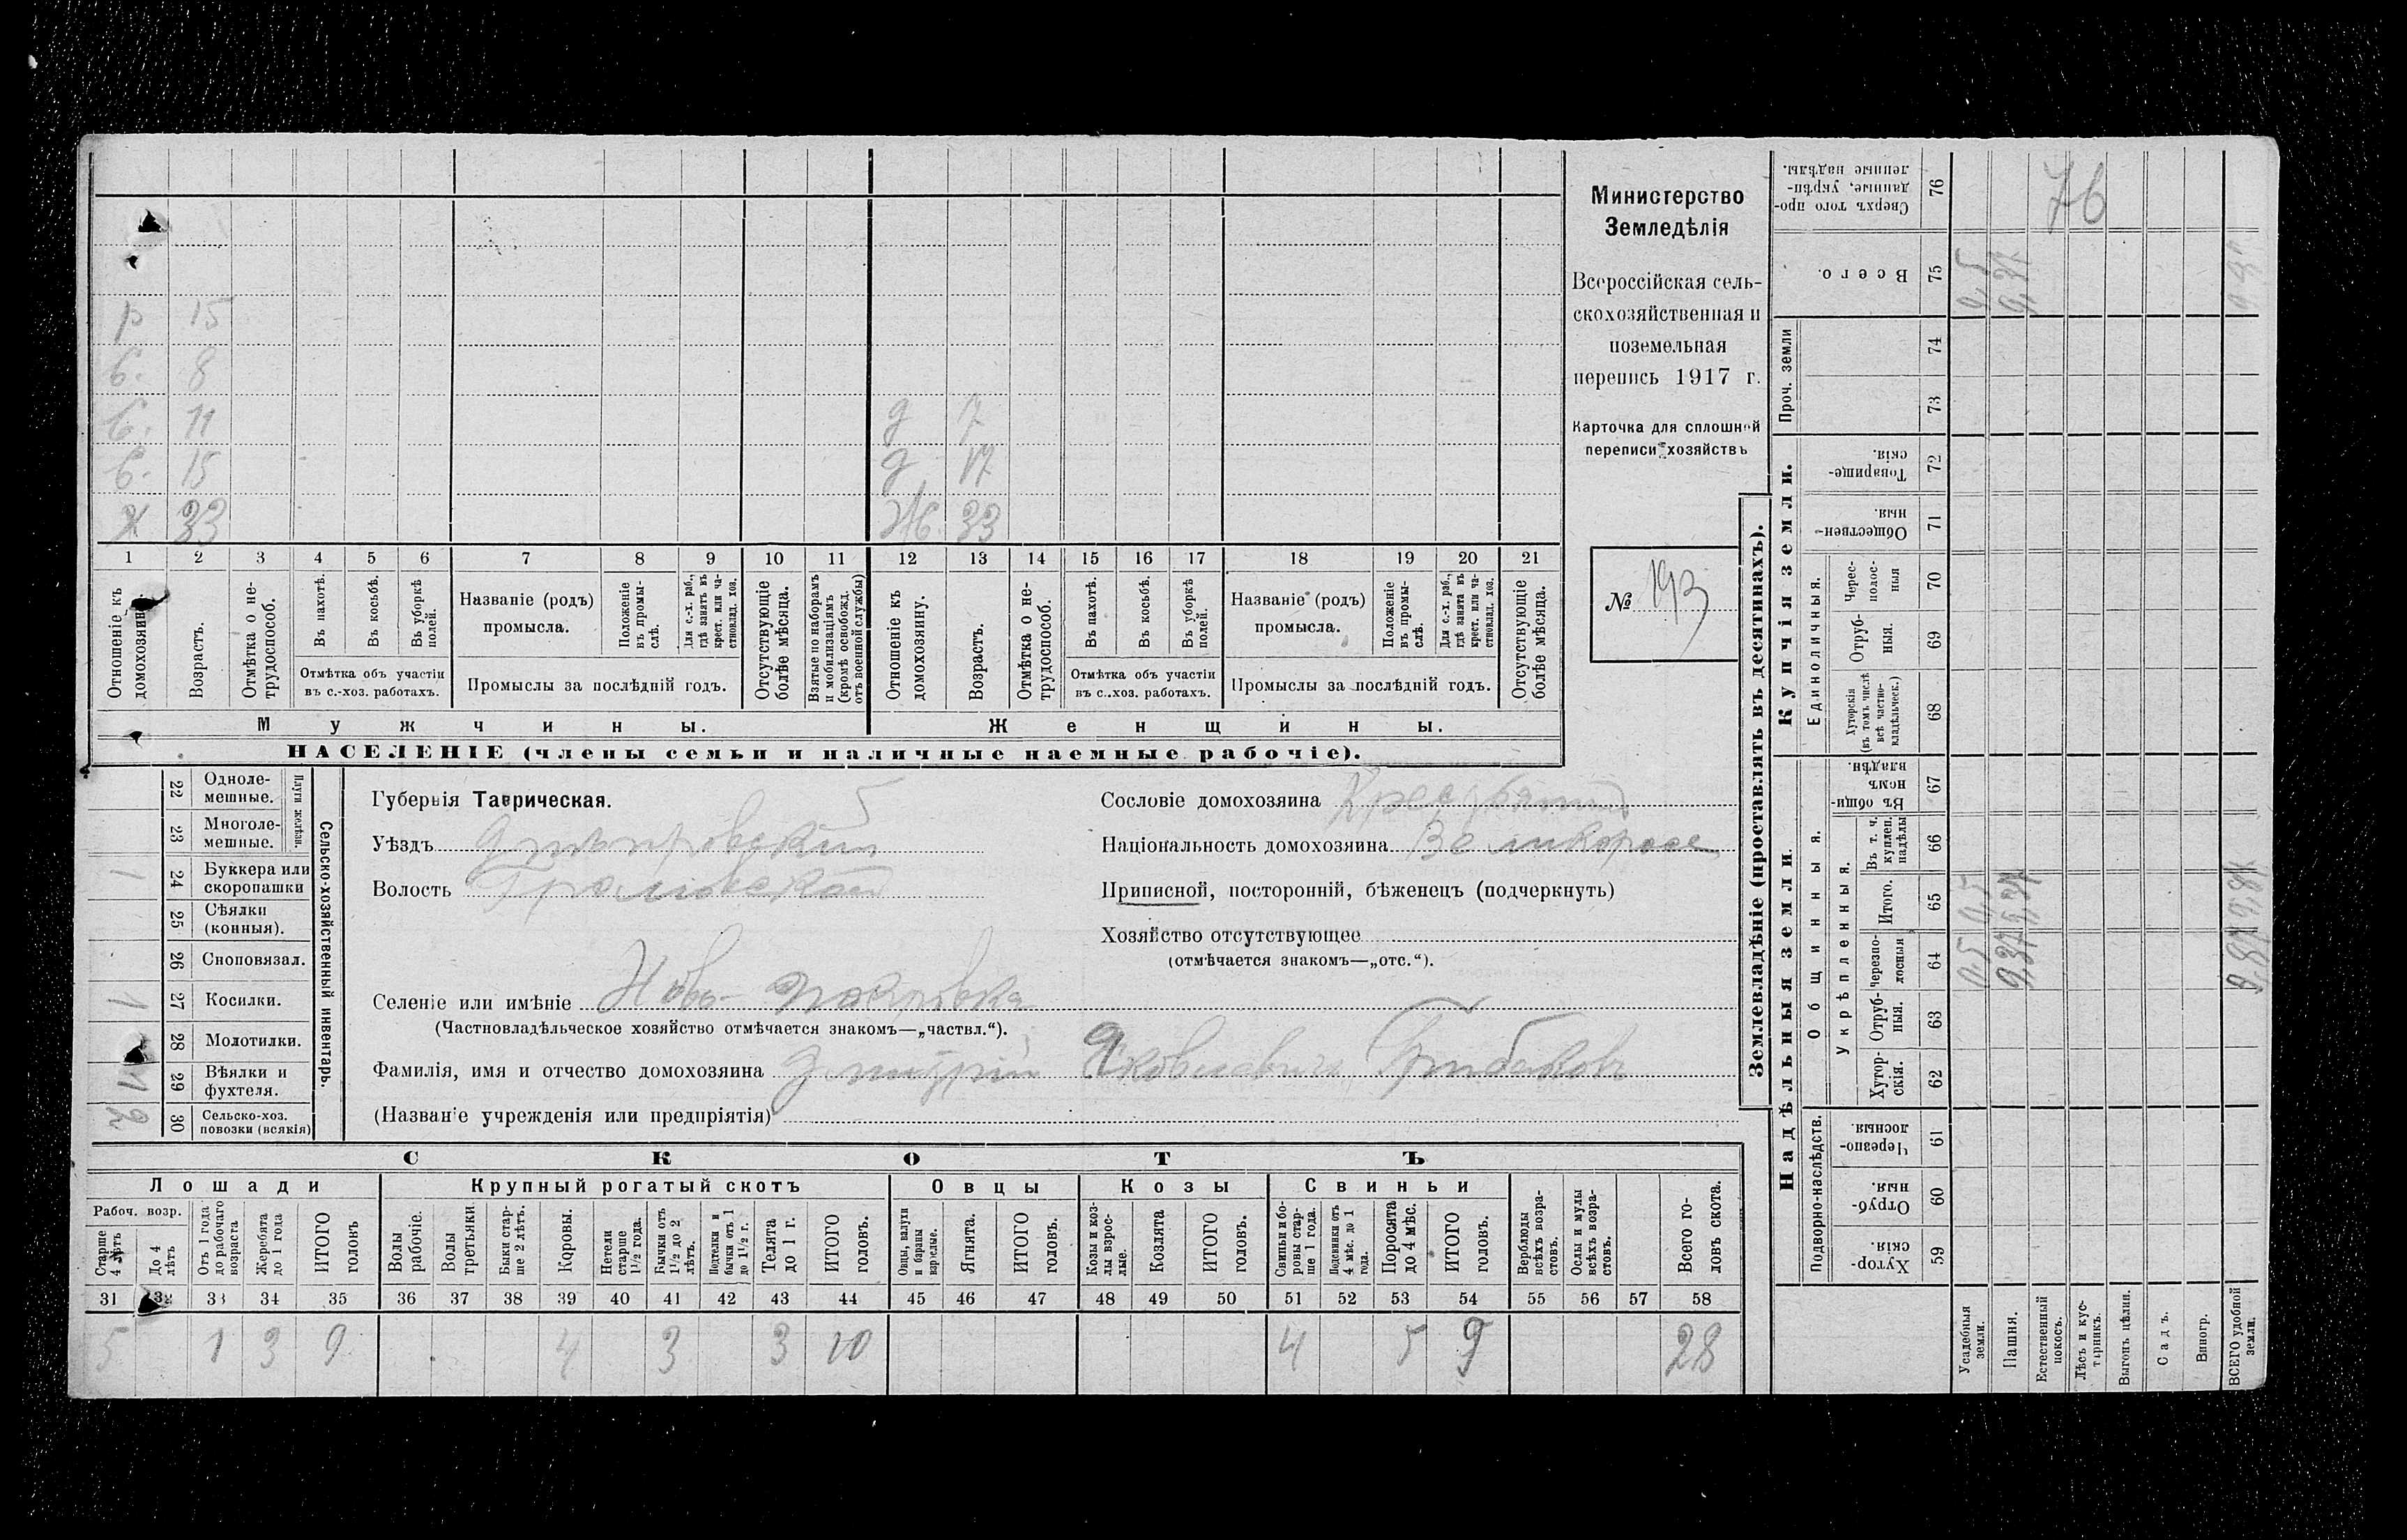 р 15
б. 8
б. 11
д 7
б. 15
д 17
х 33
Ж 33
1 2 3 4 5 6 7 8 9 10 11 12 13 14 15 16 17 18 19 20 21
Отношеніе къ домохозяину.
Возрастъ.
Отмѣтка о не-
трудоспособ.
Въ пахотѣ.
Въ косьбѣ.
Въ уборкѣ
полей.
Отмѣтка объ участіи
въ с.-хоз. работахъ.
Названіе (родъ)
промысла.
Положеніе
въ промы-
слѣ.
Для с.-х. раб.,
гдѣ занятъ въ
крест. или ча-
стновлад. хоз.
Промыслы за послѣдній годъ.
Отсутствующіе
болѣе мѣсяца.
Взятые по наборамъ
и мобилизаціямъ
(кромѣ освобожд.
отъ военной службы)
Отношеніе къ
домохозяину.
Возрастъ.
Отмѣтка о не-
трудоспособ.
Въ пахотѣ.
Въ косьбѣ.
Въ уборкѣ
полей.
Отмѣтка объ участіи
въ с.-хоз. работахъ.
Названіе (родъ)
промысла.
Положеніе
въ промы-
слѣ.
Для с.-х. раб.,
гдѣ занята въ
крест. или ча-
стновлад. хоз.
Промыслы за послѣдній годъ.
Отсутствующіе
болѣе мѣсяца.
Мужчины.
Женщины.
НАСЕЛЕНІЕ (члены семьи и наличные наемные рабочіе).
Министерство
Земледѣлія
Всероссійская сель-
скохозяйственная и
поземельная
перепись 1917 г.
Карточка для сплошной
переписи хозяйствъ
№ 193
22 Одноле-
мешные.
23 Многоле-
мешные.
Плуги желѣзн.
1 24 Буккера или
скоропашки
25 Сѣялки
(конныя).
26 Сноповязал.
1 27 Косилки.
28 Молотилки.
1 29 Вѣялки и
фухтеля.
2 30 Сельско-хоз.
повозки (всякія)
Сельско-хозяйственный инвентарь.
Губернія Таврическая.
Уѣздъ Днѣпровскій
Волость
Селеніе или имѣніе Ново-Покровка
(Частновладѣльческое хозяйство отмѣчается знакомъ—„частвл.“).
Фамилія, имя и отчество домохозяина Дмитрій Яковлевич
(Названіе учрежденія или предпріятія)
Сословіе домохозяина
Національность домохозяина Великоросс
Приписной, посторонній, бѣженецъ (подчеркнуть)
Хозяйство отсутствующее
(отмѣчается знакомъ—„отс.“).
СКОТЪ
Лошади
Крупный рогатый скотъ
Овцы
Козы
Свиньи
Рабоч. возр.
Старше
4 лѣтъ
До 4
лѣтъ
Отъ 1 года
до рабочаго
возраста
Жеребята
до 1 года
ИТОГО
головъ
Волы
рабочіе.
Волы
третьяки.
Быки стар-
ше 2 лѣтъ.
Коровы.
Нетели
старше
1½ года.
Бычки отъ
1½ до 2
лѣтъ.
Подтелки и
бычки отъ 1
до 1½ г.
Телята
до 1 г.
ИТОГО
головъ.
Овцы, валухи
и бараны
взрослые.
Ягнята.
ИТОГО
головъ.
Козы и коз-
лы взрос-
лые.
Козлята
ИТОГО
головъ.
Свиньи и бо-
ровы стар-
ше 1 года.
Подсвинки отъ
4 мѣс. до 1
года.
Поросята
до 4 мѣс.
ИТОГО
головъ.
Верблюды
всѣхъ возра-
стовъ.
Ослы и мулы
всѣхъ возра-
стовъ.
Всего го-
ловъ скота.
31 32 33 34 35 36 37 38 39 40 41 42 43 44 45 46 47 48 49 50 51 52 53 54 55 56 57 58
5 1 3 9 4 3 3 10 4 5 9 28
Землевладѣніе (проставлять въ десятинахъ).
Купчія земли.
Надѣльныя земли
Сверхъ того про-
данные, укрѣп-
ленные надѣлы.
76
76
Всего.
75
0,5
9,31
Проч. земли
74
73
Товарище-
скія.
72
Обществен-
ныя.
71
Единоличныя.
Черес-
полос-
ныя
70
Отруб-
ныя.
69
Хуторскія
(въ томъ числѣ
всѣ частно-
владѣльческ.)
68
Общинныя.
Въ общи-
номъ
владѣн.
67
Укрѣпленныя.
Въ т. ч.
куплен.
надѣлы
66
Итого.
65
0,5
9,31
9,81
Черезпо-
лосныя
64
0,5
9,31
9,81
Отруб-
ныя.
63
Хутор-
скія.
62
Подворно-наслѣдств.
Черезпо-
лосныя.
61
Отруб-
ныя.
60
Хутор-
скія.
59
Усадебныя
земли.
Пашня.
Естественный
покосъ.
Лѣсъ и кус-
тарникъ.
Выгонъ цѣлин.
Садъ.
Виногр.
ВСЕГО удобной
земли.